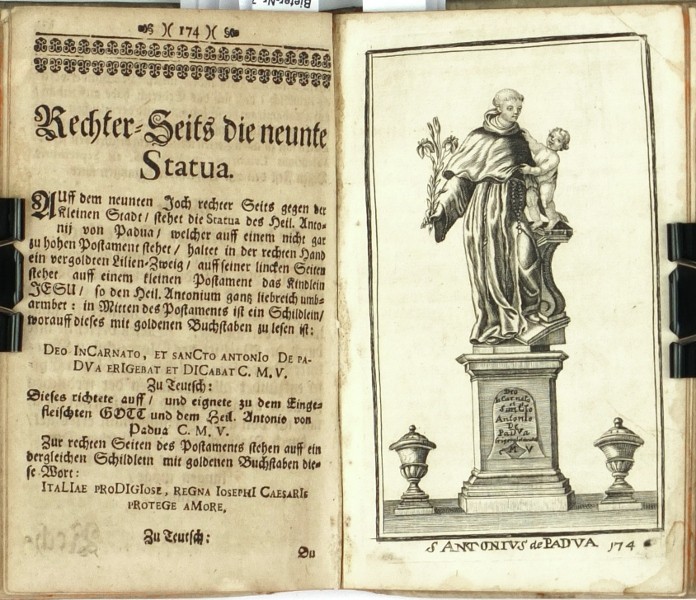 )( 174 )(
Rechter-Seits die neunte
Statua.
AUff dem neunten Joch rechter Seits gegen der
kleinen Stadt / stehet die Statua des Heil. Anto-
nij von Padua / welcher auff einem nicht gar
zu hohen Postament stehet / haltet in der rechten Hand
ein vergoldten Lilien-Zweig / auff seiner lincken Seiten
stehet auff einem kleinen Postament das Kindlein
JESU / so den Heil. Antonium gantz liebreich umb-
armbet : in Mitten des Postaments ist ein Schildlein /
worauff dieses mit goldenen Buchstaben zu lesen ist:
DEO INCARNATO, ET SANCTO ANTONIO DE PA-
DVA ERIGEBAT ET DICABAT C. M. V.
Zu Teutsch:
Dieses richtete auff / und eignete zu dem Einge-
fleischten GOTT und dem Heil. Antonio von
Padua C. M. V.
Zur rechten Seiten des Postaments stehen auff ein
dergleichen Schildlein mit goldenen Buchstaben die-
se Wort:
ITALIAE PRODIGIOSE, REGNA IOSEPHI CAESARIS
PROTEGE AMORE,
Zu Teutsch:
Du
Deo
InCarnato
et
SanCto
Antonio
De
PaDVa
M V
S ANTONIVS de PADVA 174
Bieter-Nr.